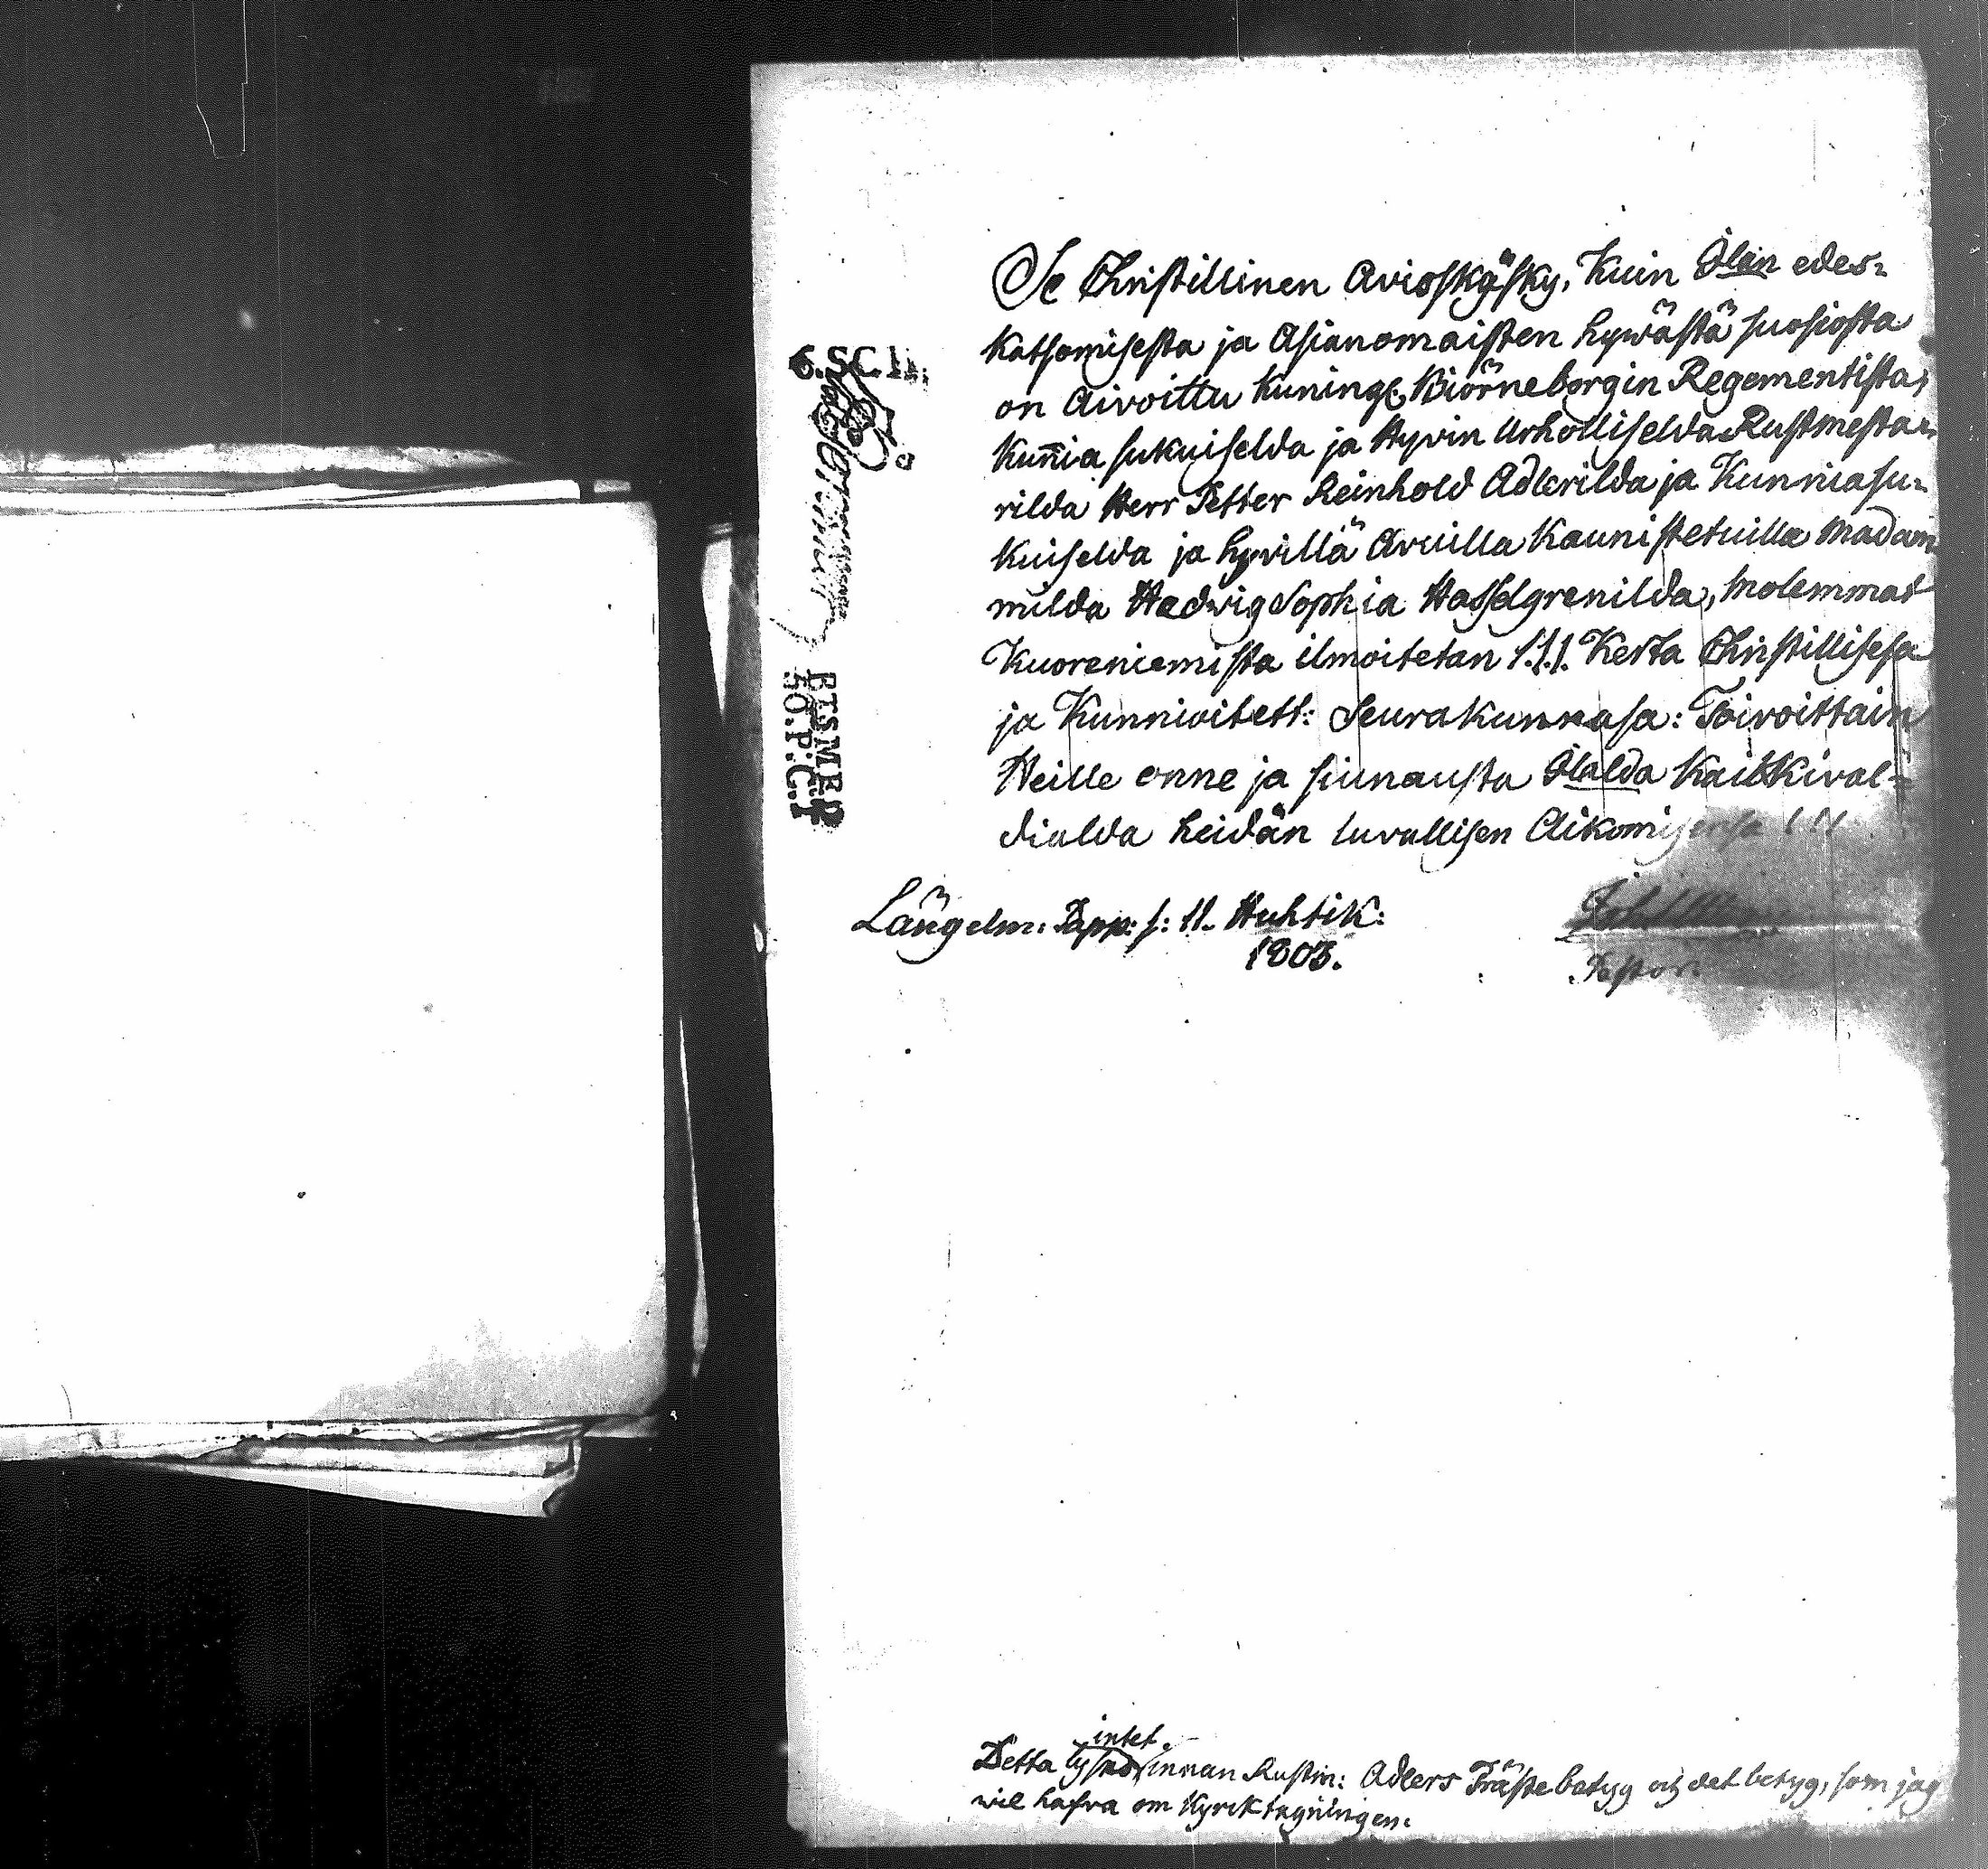 Se Christillinen Aviosskäsky, Kuin Ilän edes-
katsomisesta ja Asianomaisten hywästä suosiosta
on Aivoittu Kuningl. Biörneborgin Regementista,
Kunnia sukuiselda ja Hyvin Urhollisela Rustmesta-
rilda Herr Petter Reinhold Adlerilda ja Kunniasu-
kuiselda ja hyvillä Avuilla Kaunistetuilla Madam
milda Hedwig Sophia Hasselgrenilda, Molemmat
Kuoreniemista ilmoitetan 1.1.1. Kerta Christillisesa
ja Kunnioitett: Seurakunnasa: Toivoittain
Heille onne ja siunausta Ilälda Kaikkival-
dialda heidän luvallisen Aikomisensa !!!
Längelm: Papp: s: 11. Huhtik:
1803.
Pastor
6.SC.
RTSMED
50.P.C.T
intet
Detta lyses innan Rustm: Adlers Präste betyg och det betyg, som jag
wil hafva om Kyrktagningen.